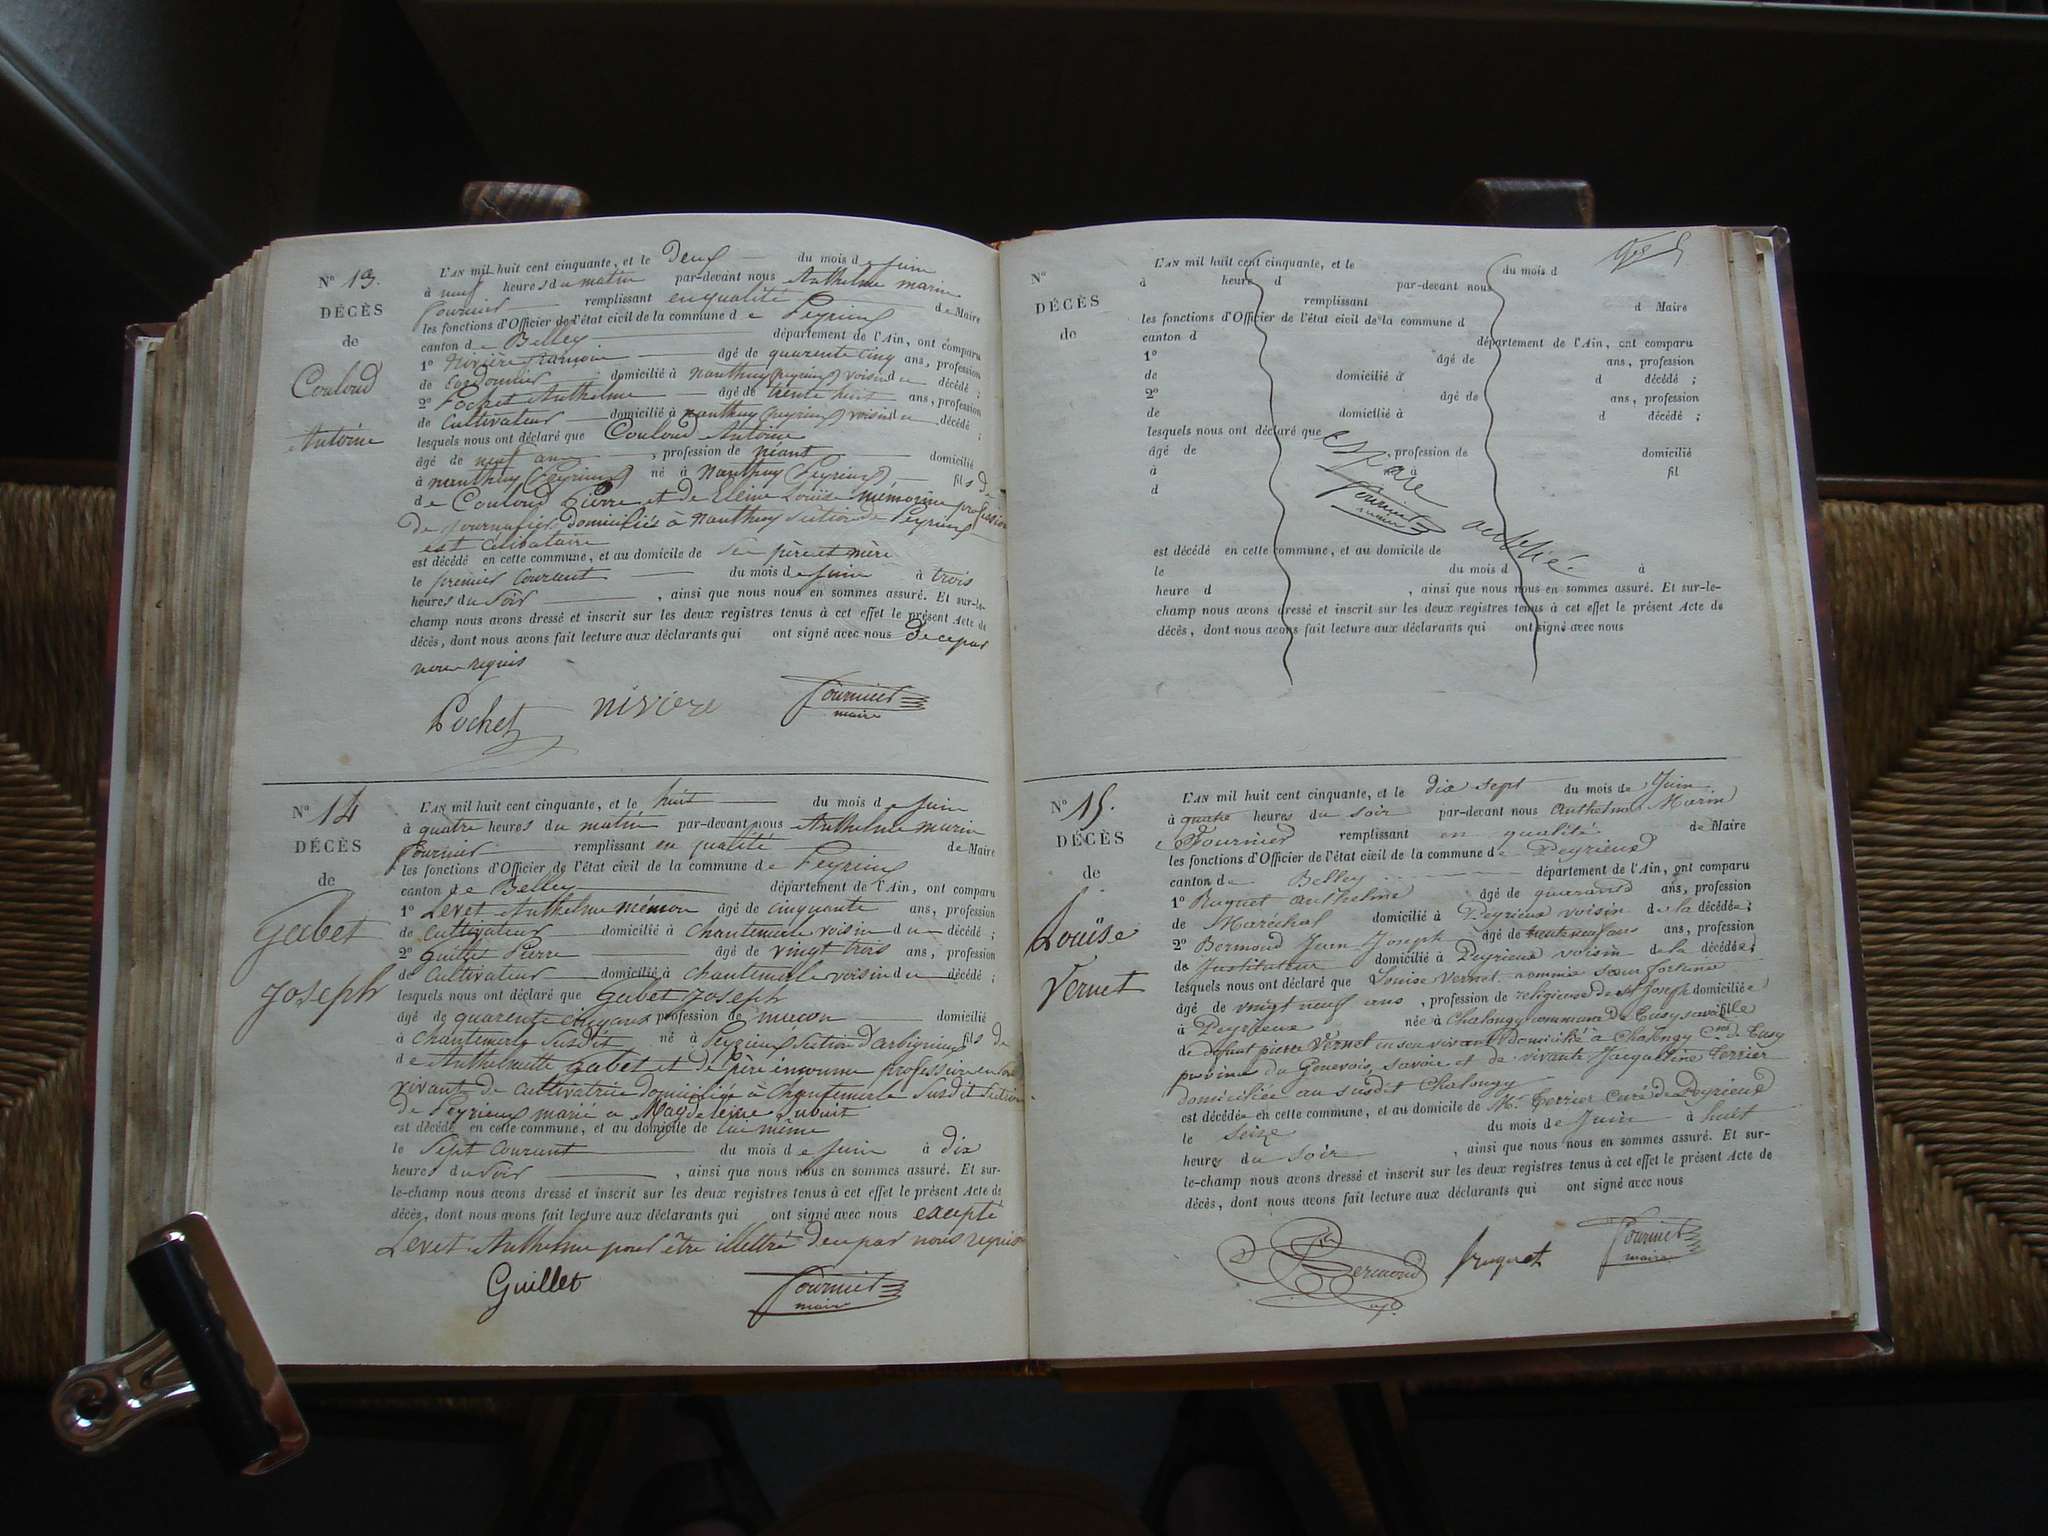 N° 13.
DÉCÈS
de
Couloud
Antoine
L'AN mil huit cent cinquante, et le deux du mois de Juin
à neuf heures du matin par-devant nous Anthelme marin
fournier remplissant en qualité de Maire
les fonctions d'Officier de l'état civil de la commune de Peyrieux
canton de Belley département de l'Ain, ont comparu
1° Nivière françois âgé de quarente cinq ans, profession
de Cordonnier domicilié à nanthuy (peyrieux) voisin du décédé ;
2° Pochet Anthelme âgé de trente huit ans, profession
de Cultivateur domicilié à nanthuy (peyrieux) voisin du décédé ;
lesquels nous ont déclaré que Couloud Antoine
âgé de neuf ans , profession de néant domicilié
à nanthuy (Peyrieux) né à Nanthuy (Peyrieux) fils de
de Couloud Pierre et de Louise profession
de journalier domiciliés à Nanthuy Section de Peyrieux
est célibataire
est décédé en cette commune, et au domicile de Ses père et mère
le premier Courant du mois de Juin à trois
heures du Soir , ainsi que nous nous en sommes assuré. Et sur-le-
champ nous avons dressé et inscrit sur les deux registres tenus à cet effet le présent Acte de
décès, dont nous avons fait lecture aux déclarants qui ont signé avec nous De ce par
nous requis
Pochet nivière fournier
maire
N° 14
DÉCÈS
de
Gabet
Joseph
L'AN mil huit cent cinquante, et le huit du mois de Juin
à quatre heures du matin par-devant nous Anthelme marin
fournier remplissant en qualité de Maire
les fonctions d'Officier de l'état civil de la commune de Peyrieux
canton de Belley département de l'Ain, ont comparu
1° Levet Anthelme mémon âgé de cinquante ans, profession
de cultivateur domicilié à Chantemerle voisin du décédé ;
2° Guillet Pierre âgé de vingt trois ans, profession
de Cultivateur domicilié à Chantemerle voisin du décédé ;
lesquels nous ont déclaré que Gabet Joseph
âgé de quarente cinq ans profession de macon domicilié
à Chantemerle Susdit né à Peyrieux Section d'arbignieu fils de
de Anthelmette Gabet et de Père inconnu profession en Son
vivant de cultivatrice domiciliée à Chantemerle Susdit Section
de Peyrieux marié a Magdeleine Dubuit
est décédé en cette commune, et au domicile de lui même
le Sept Courant du mois de Juin à dix
heures du Soir , ainsi que nous nous en sommes assuré. Et sur-
le-champ nous avons dressé et inscrit sur les deux registres tenus à cet effet le présent Acte de
décès, dont nous avons fait lecture aux déclarants qui ont signé avec nous excepté
Levet Anthelme pour être illettré de ce par nous requis
Guillet fournier
maire
N°
DÉCÈS
de
L'AN mil huit cent cinquante, et le du mois d
à heure d par-devant nous
remplissant d Maire
les fonctions d'Officier de l'état civil de la commune d
canton d département de l'Ain, ont comparu
1° âgé de ans, profession
de domicilié à d décédé ;
2° âgé de ans, profession
de domicilié à d décédé ;
lesquels nous ont déclaré que
âgé de , profession de domicilié
à à fil
d
fournier
maire
est décédé en cette commune, et au domicile de
le du mois d à
heure d , ainsi que nous nous en sommes assuré. Et sur-le-
champ nous avons dressé et inscrit sur les deux registres tenus à cet effet le présent Acte de
décès, dont nous avons fait lecture aux déclarants qui ont signé avec nous
N° 15.
DÉCÈS
de
Louïse
Vernet
L'AN mil huit cent cinquante, et le dix sept du mois de Juin
à quatre heures du soir par-devant nous Anthelme Marin
Fournier remplissant en qualité de Maire
les fonctions d'Officier de l'état civil de la commune de Peyrieux
canton de Belley département de l'Ain, ont comparu
1° Ruguet anthelme âgé de quarante ans, profession
de Maréchal domicilié à Peyrieux voisin de la décédée ;
2° Bermond Jean Joseph âgé de trente neuf ans ans, profession
de Instituteur domicilié à Peyrieux voisin de la décédée ;
lesquels nous ont déclaré que Louise Vernet nommée sœur fortunée
âgé de vingt neuf ans , profession de religieuse de St Joseph domiciliée
à Peyrieux née à Chalongy commune de Cusy savoie fille
de défunt pierre Vernet en son vivant domicilié à Chalongy Cne de Cusy
province du Genevois, savoie et de vivante Jacqueline Terrier
domiciliée au susdit Chalongy
est décédée en cette commune, et au domicile de Mr Terrier Curé de Peyrieux
le seize du mois de Juin à huit
heures du soir , ainsi que nous nous en sommes assuré. Et sur-
le-champ nous avons dressé et inscrit sur les deux registres tenus à cet effet le présent Acte de
décès, dont nous avons fait lecture aux déclarants qui ont signé avec nous
Bermond ruguet fournier
maire